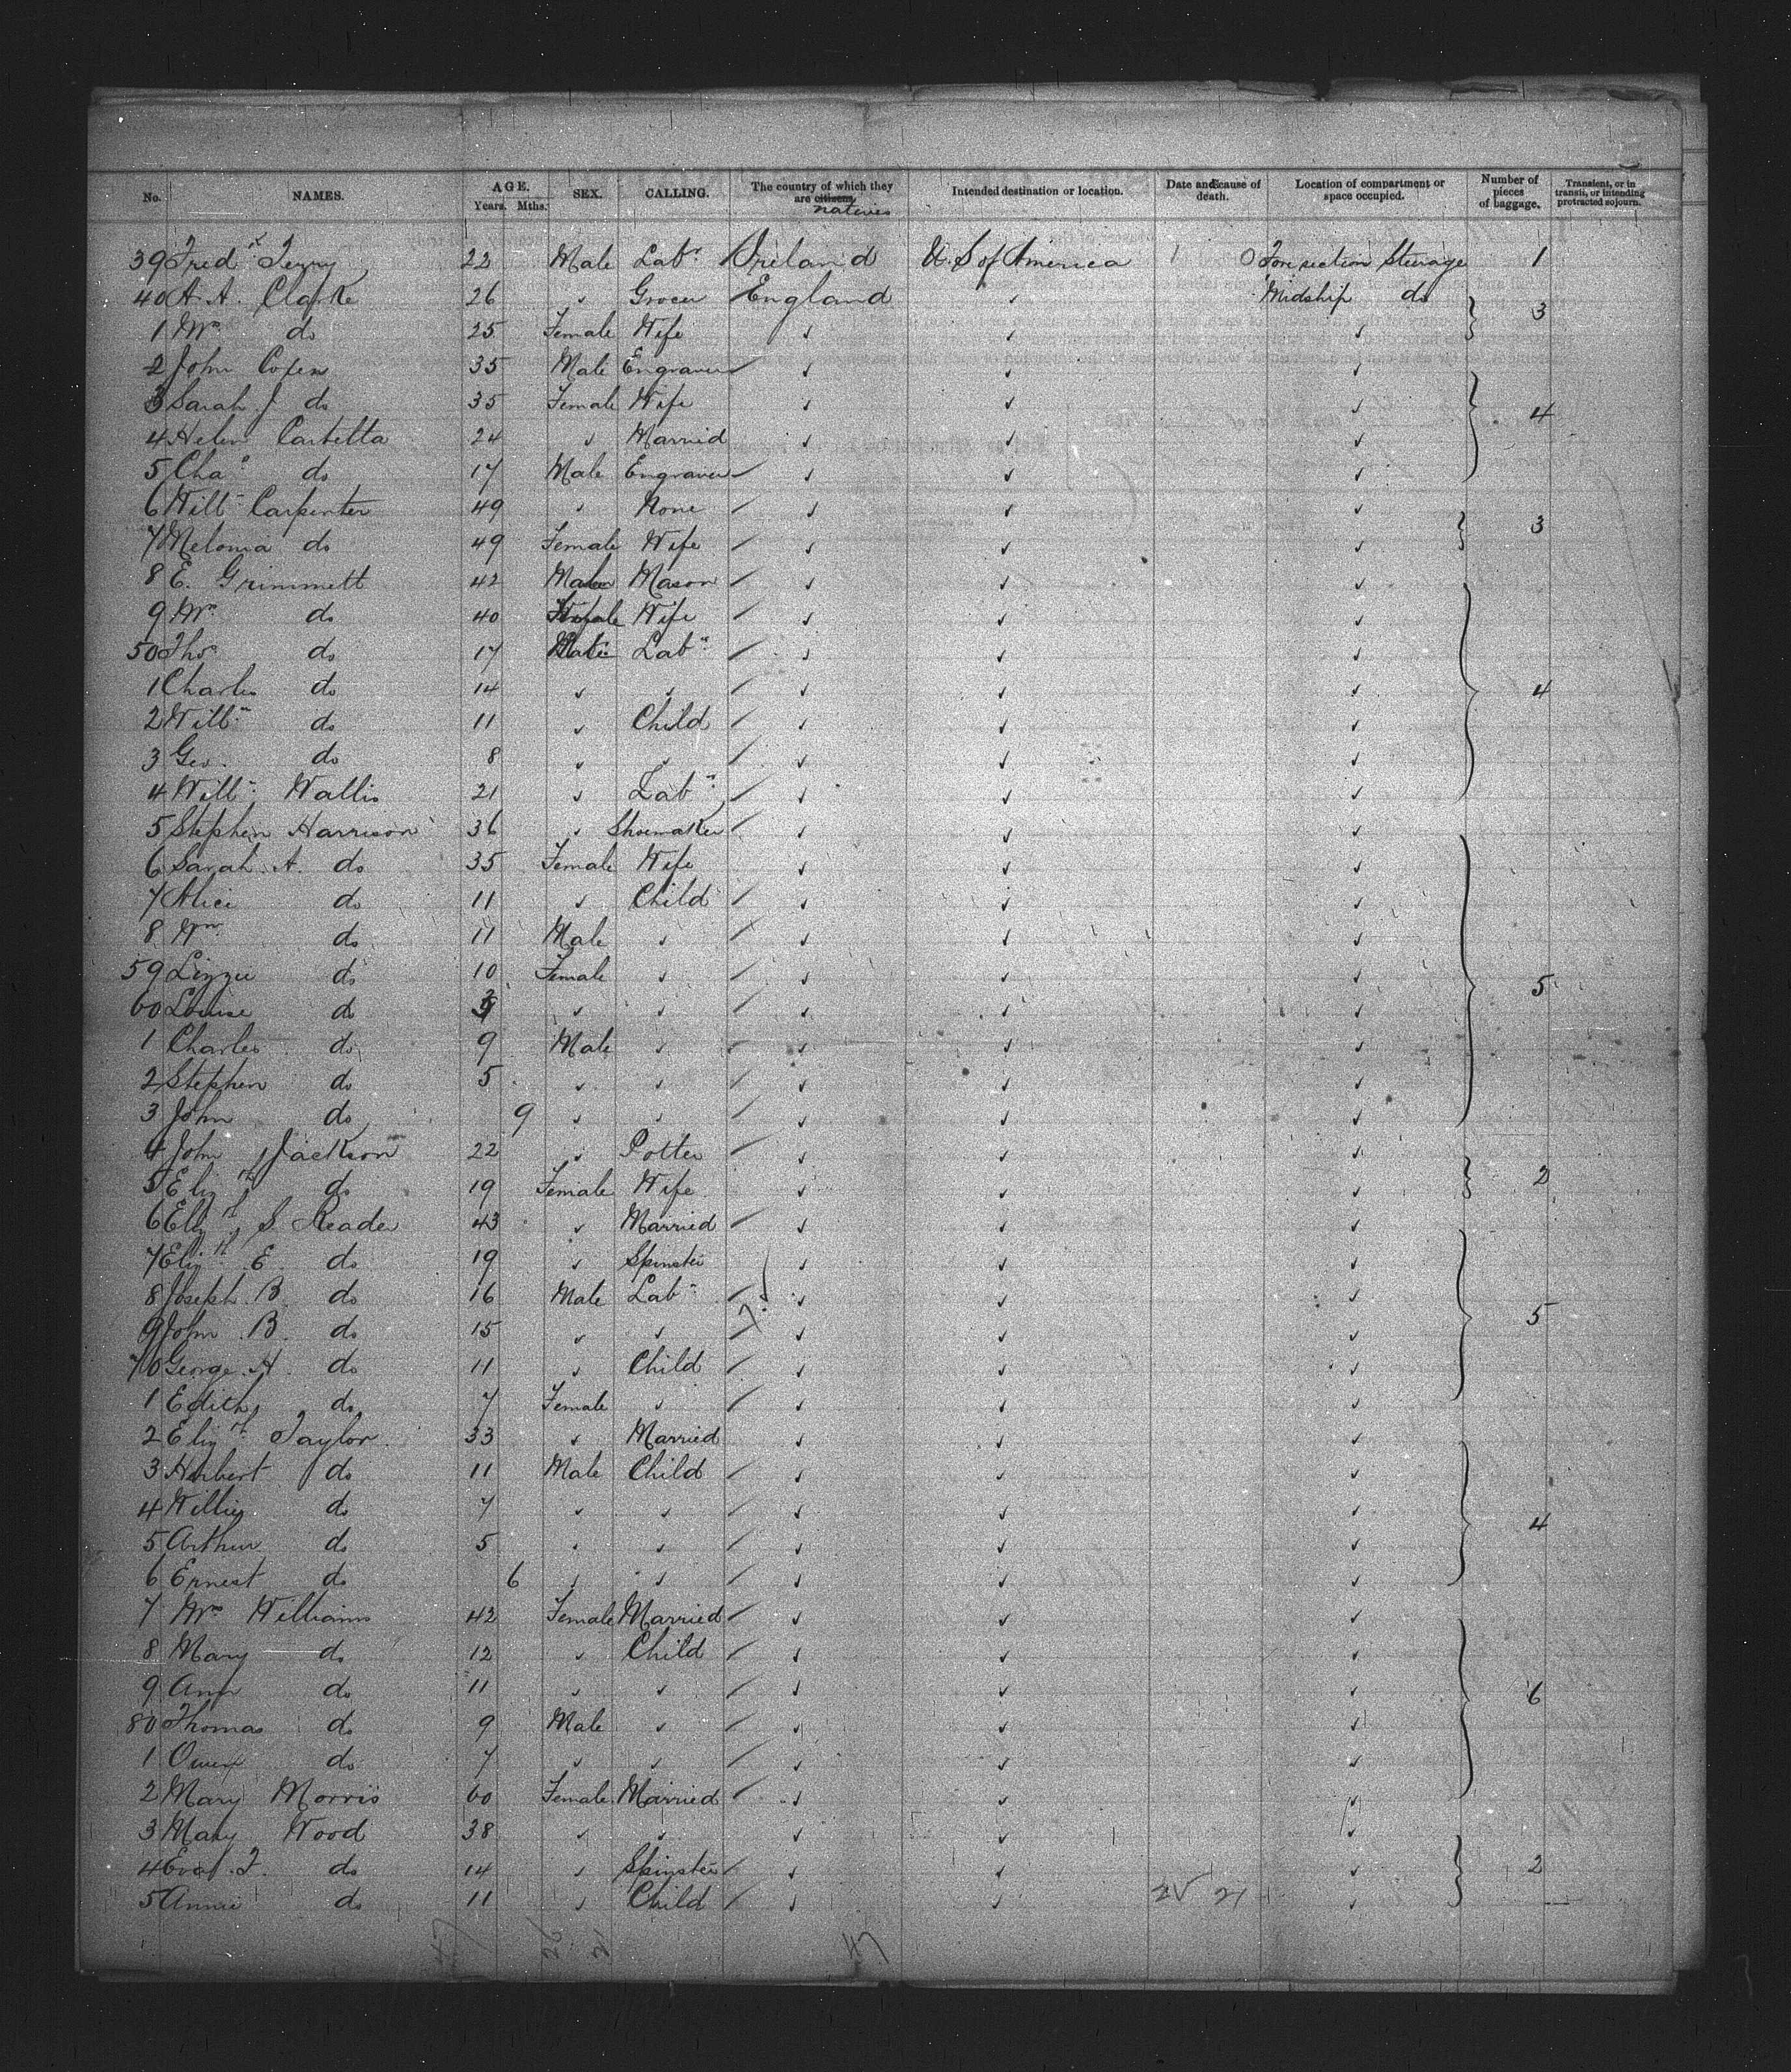 No. NAMES. AGE. Years. Mths. SEX. CALLING. The country of which they are citizens, natives Intended destination or location. Date and cause of death. Location of compartment or space occupied. Number of pieces of baggage. Transient, or in transit, or intending protracted sojourn.
39 Fredk Terry 22 Male Labr Ireland U.S of America Fore section Steerage 1
40 A. A. Clarke 26 " Grocer England " Midship do 3
1 Mrs do 25 Female Wife " " "
2 John Coxen 35 Male Engraver " " "
3 Sarah J do 35 Female Wife " " " 4
4 Helen 24 " Married " " "
5 Chas do 17 Male Engraver " " "
6 Willm Carpenter 49 " None " " " 3
7 Melonia do 49 Female Wife " " "
8 E. Grimmett 42 Male Mason " " "
9 Mrs do 40 Female Wife " " "
50 Thos do 17 Male Labr " " "
1 Charles do 14 " " " " " 4
2 Willm do 11 " Child " " "
3 Geo. do 8 " " " " "
4 Willm Wallis 21 " Labr " " "
5 Stephen Harrison 36 " Shoemaker " " "
6 Sarah A. do 35 Female Wife " " "
7 Alice do 11 " Child " " "
8 Wm do 11 Male " " " "
59 Lizzie do 10 Female " " " " 5
60 Louise do " " " " "
1 Charles do 9 Male " " " "
2 Stephen do 5 " " " " "
3 John do 9 " " " " "
4 John Jackson 22 " Potter " " "
5 Elizth do 19 Female Wife " " " 2
6 Elizth S. Reader 43 " Married " " "
7 Elizth E. do 19 " Spinster " " "
8 Joseph B. do 16 Male Labr " " "
9 John B. do 15 " " " " " 5
70 George H. do 11 " Child " " "
1 Edith do 7 Female " " " "
2 Elizth Taylor 33 " Married " " "
3 Herbert do 11 Male Child " " "
4 Willie do 7 " " " " "
5 Arthur do 5 " " " " " 4
6 Ernest do 6 " " " " "
7 Mrs Williams 42 Female Married " " "
8 Mary do 12 " Child " " "
9 Ann do 11 " " " " " 6
80 Thomas do 9 Male " " " "
1 Owen do 7 " " " " "
2 Mary Morris 60 Female Married " " "
3 Mary Wood 38 " " " " "
4 do 14 " Spinster " " " 2
5 Annie do 11 " Child " " 21 "
47 26 21 47